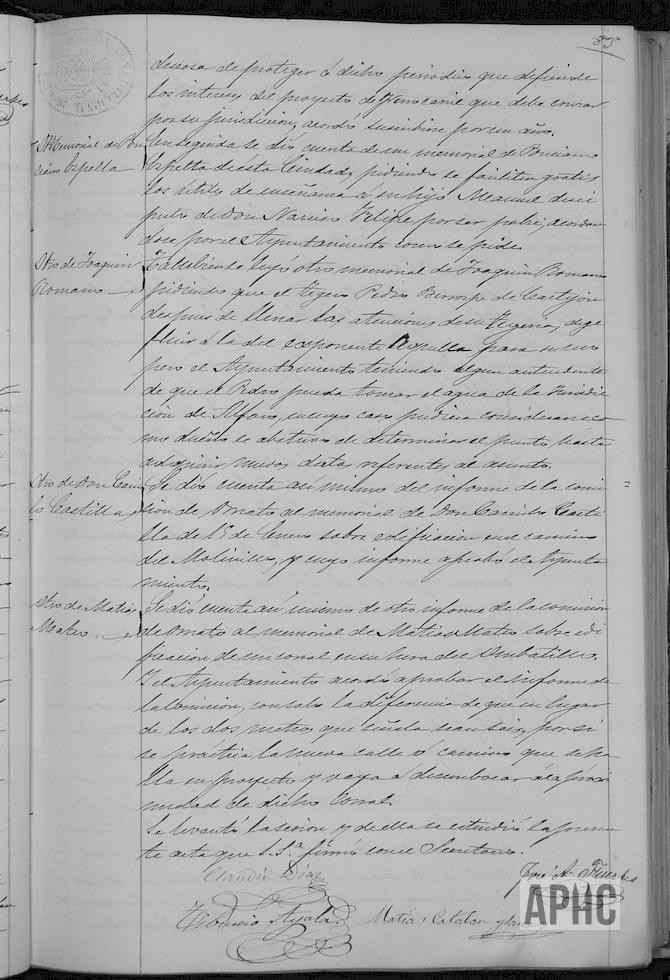 deseosa de proteger á dicho periodico que defiende
los intereses del proyecto de ferrocarril que debe cruzar
por su jurisdiccion, acordó suscribirse por un año.
Memorial de Pon
ciano Espelta
Enseguida se dió cuenta de un memorial de Ponciano
Espelta de esta Ciudad, pidiendo se faciliten gratis
los útiles de enseñanza á su hijo Manuel disci
pulo de Don Narciso Felipe por ser pobre, acordan
dose por el Ayuntamiento como se pide.
Otro de Joaquin
Romano
Tambien se leyó otro memorial de Joaquin Romano
pidiendo que el Tegero Pedro de Castejon
despues de llenar las atenciones de su Tegeria,
á la del exponente para su uso
pero el Ayuntamiento teniendo algun antecedente
de que el Pedro pueda tomar el agua de la Jurisdic
cion de Alfaro, en cuyo caso pudiera considerarsele co
mo dueño se abstuvo de determinar el punto hasta
adquirir nuevos datos referentes al asunto.
Otro de Don Cami
lo Castilla
Se dió cuenta asi mismo del informe de la comi
sion de Ornato al memorial de Don Camilo Casti
lla de 15 de Enero sobre edificacion en el camino
del Molinillo, y cuyo informe aprobó el Ayunta
miento.
Otro de Matias
Mateo
Se dió cuenta asi mismo de otro informe de la comision
de Ornato al memorial de Matias Mateo sobre edi
ficacion de un corral en su hera del Ombatillo.
Y el Ayuntamiento acordó aprobar el informe de
la Comision, con sola la diferencia de que en lugar
de los dos metros que señala sean seis, por si
se práctica la nueva calle ó camino que se ha
lla en proyecto y vaya á desembocar á la proxi
midad de dicho Corral.
Se levantó la sesion y de ella se estendió la presen
te acta que S.Sª firmó con el Secretario.
Claudio Diaz
José A. Fuertes
Tiburcio Ayala
Matias Catalan
APHC